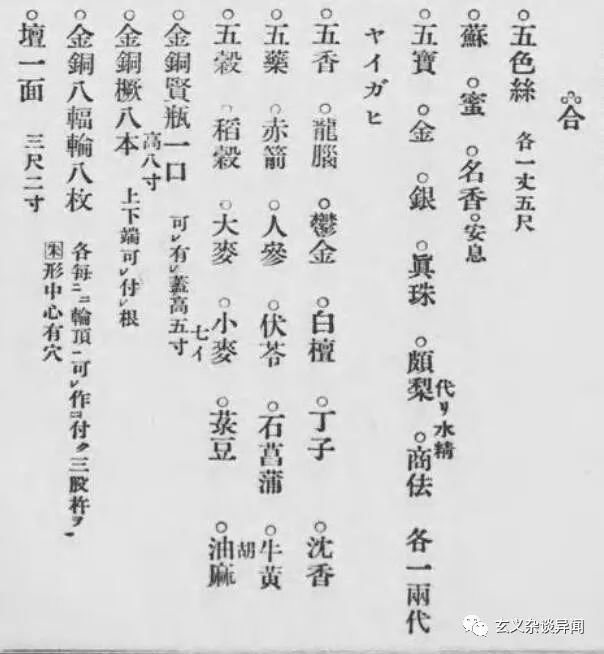 合
五色絲 各一丈五尺
蘇 蜜 名香 安息
五寶 金 銀 眞珠 頗梨 代リ水精 商佉 各一兩代
ヤイガヒ
五香 龍腦 鬱金 白檀 丁子 沈香
五藥 赤箭 人參 伏苓 石菖蒲 牛黃
五穀 稻穀 大麥 小麥 菉豆 胡 油麻
金銅賢瓶一口 可レ有レ蓋高五寸 七イ
金銅橛八本 高八寸 上下端可レ付レ根
金銅八輻輪八枚 各每ニ輪頂ニ可レ作二付ク三股杵ヲ一
朱 形中心有穴
壇一面 三尺二寸
玄义杂谈异闻